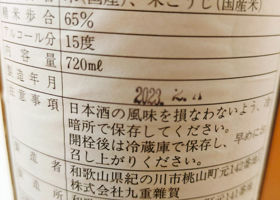 米(国産)、米こうじ(国産米)
精米歩合 65%
アルコール分 15度
内容量 720ml
製造年月 2023.
注意事項 日本酒の風味を損なわないよう、
暗所で保存してください。
開栓後は冷蔵庫で保存し、早めにお
召し上がりください。
製造者 和歌山県紀の川市桃山町元142番地
株式会社九重雜賀
製造所 和歌山県紀の川市桃山町元